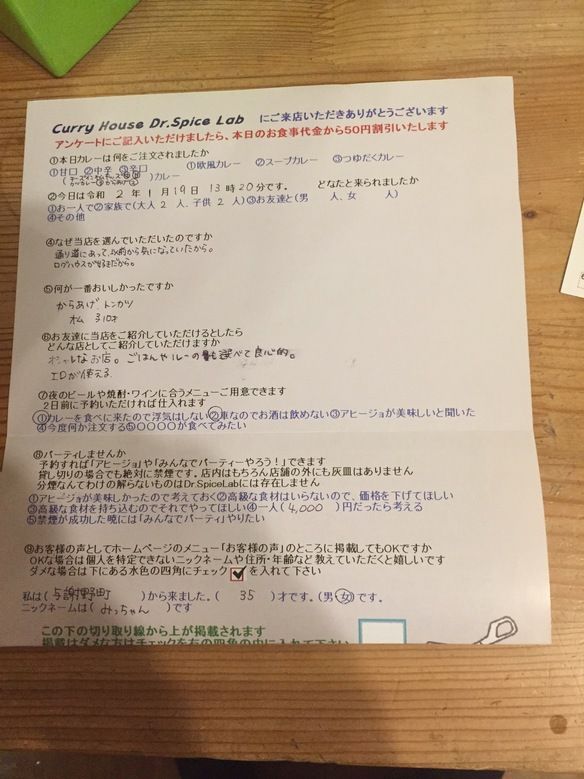 Curry House Dr.Spice Lab にご来店いただきありがとうございます
アンケートにご記入いただけましたら、本日のお食事代金から50円割引いたします
①本日カレーは何をご注文されましたか
①甘口 ②中辛 ③辛口 ①欧風カレー ②スープカレー ③つゆだくカレー
( )カレー
②今日は令和 2 年 1 月 19 日 13 時 20 分です。 どなたと来られましたか
①お一人で ②家族で(大人 2 人、子供 2 人) ③お友達と(男 人、女 人)
④その他
④なぜ当店を選んでいただいたのですか
通り道にあって、以前から気になっていたから。
ログハウスが好きだから。
⑤何が一番おいしかったですか
からあげ トンカツ
⑥お友達に当店をご紹介していただけるとしたら
どんな店としてご紹介していただけますか
オシャレなお店。ごはんやルーの量も選べて良心的。
IDが使える
⑦夜のビールや焼酎・ワインに合うメニューご用意できます
2日前に予約いただければ仕入れます
①カレーを食べに来たので浮気はしない ②車なのでお酒は飲めない ③アヒージョが美味しいと聞いた
④今度何か注文する ⑤〇〇〇〇が食べてみたい
⑧パーティしませんか
予約すれば「アヒージョ」や「みんなでパーティーやろう!」できます
貸し切りの場合でも絶対に禁煙です。店内はもちろん店舗の外にも灰皿はありません
分煙なんてわけの解らないものはDr.SpiceLabには存在しません
①アヒージョが美味しかったので考えておく ②高級な食材はいらないので、価格を下げてほしい
③高級な食材を持ち込むのでそれでやってほしい ④一人(4,000)円だったら考える
⑤禁煙が成功した暁には「みんなでパーティ」やりたい
⑨お客様の声としてホームページのメニュー「お客様の声」のところに掲載してもOKですか
OKな場合は個人を特定できないニックネームや住所・年齢など教えていただくと嬉しいです
ダメな場合は下にある水色の四角にチェック を入れて下さい
私は(与謝野町)から来ました。(35)才です。(男 女)です。
ニックネームは(みっちゃん)です
この下の切り取り線から上が掲載されます
掲載はダメな方はチェックを右の四角の中に入れて下さい